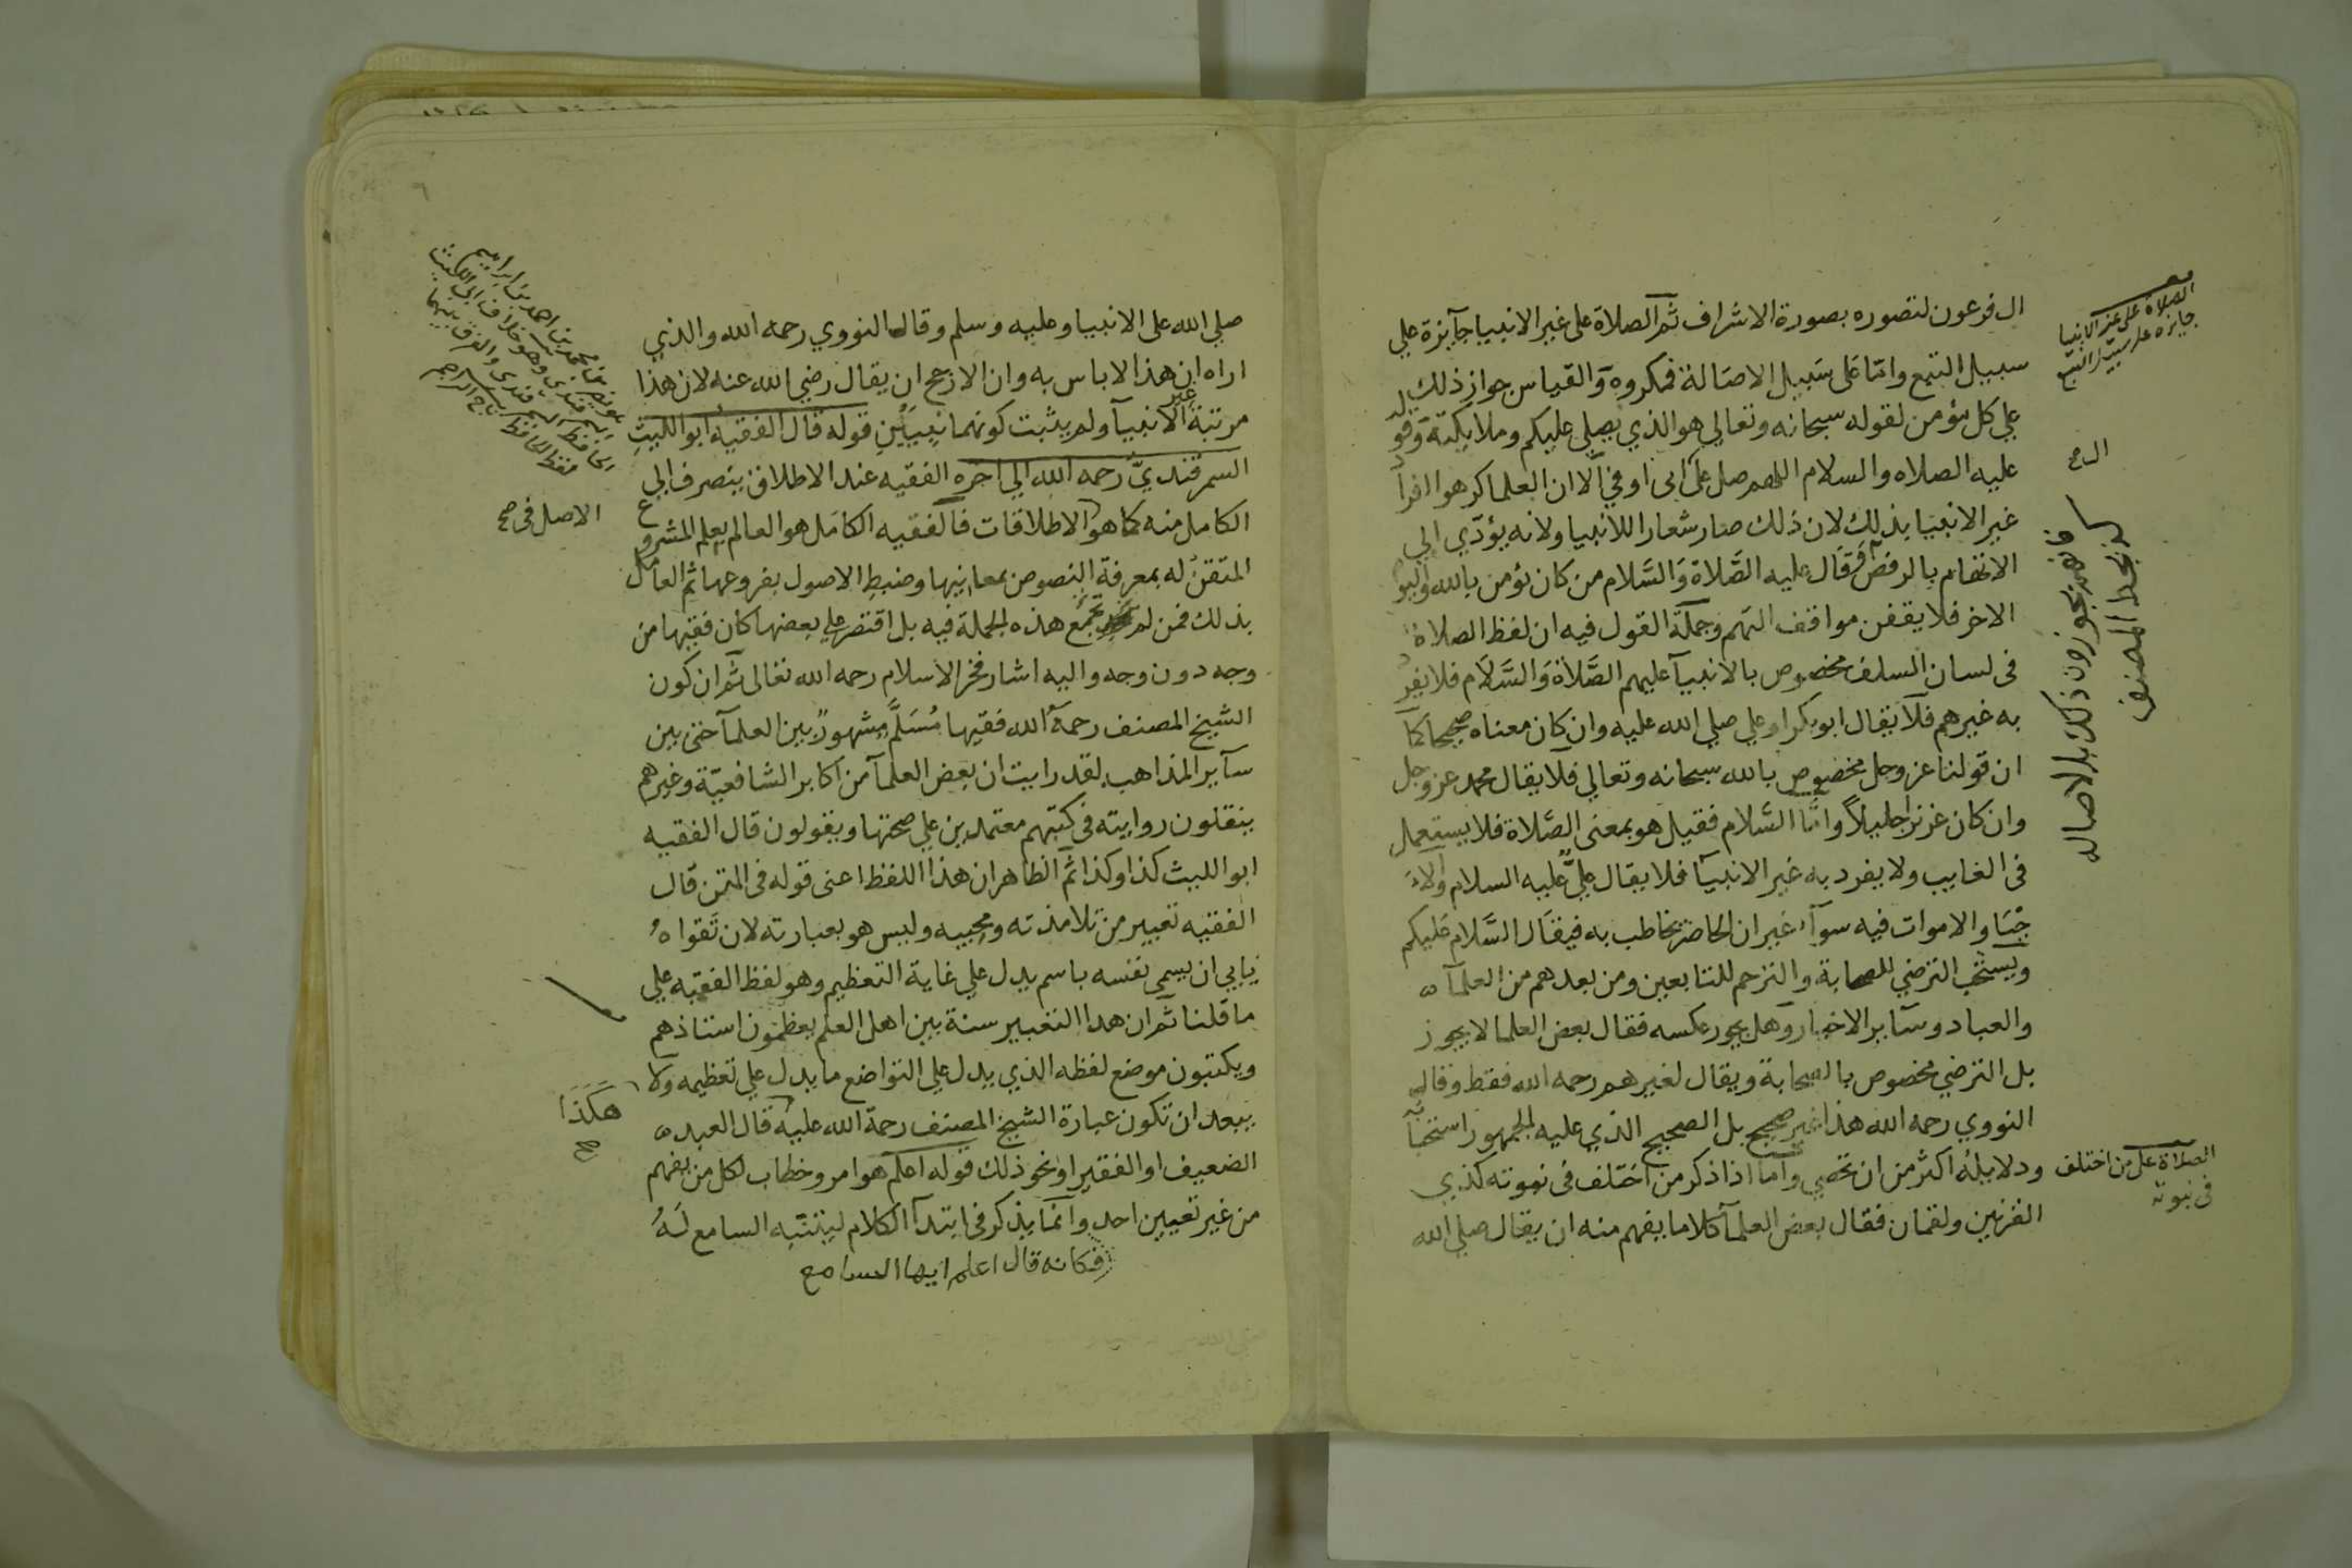 ال فرعون لتصوره بصورة الاشراف ثم الصلاة على غير الانبيا جآيزة علي
سبيل التبع وامّا عَلى سَبيل الاصَالة فمكروه وَالقياس جواز ذلك
علي كل مؤمن لقوله سبحانه وتعالي هو الذي يصلي عليكم وملايكته وقو
عليه الصلاه والسلام اللهم صل على ابى اوفي الّا ان العلما كرهوا افرا
غير الانبيَا بذلك لان ذلك صار شعارا للانبيا ولانه يؤدّي الي
الاتهام بالرفض وَقَال عليه الصَّلاة وَالسَّلام من كان يؤمن بالله واليو
الاخر فلا يقفن مواقف التهم وجملة القول فيه ان لفظ الصلاة
فى لسان السلف مخصوص بالانبيآ عليهم الصَّلاة وَالسَّلَام فلا يفر
به غيرهم فلا يقال ابو بكر او علي صلي الله عليه وان كان معناه صحيحا كما
ان قولنا عز وجل مخصوص بالله سبحانه وتعالي فلا يقال محمد عز وجل
وان كان عزيزا جليلاً وامَّا السَّلام فقيل هو بمعنى الصَّلاة فلا يستعمل
فى الغايب ولا يفرد به غير الانبيآ فلا يقال عليٌّ عليه السلام والا
حْيَا والاموات فيه سوآء غير ان الحاضر يخاطب به فيقَال السَّلام عَليكم
ويستحب الترضي للصحابة والترحم للتابعين ومن بعدهم من العلمآ
والعباد وسآير الاخيار وهل يجوز عكسه فقال بعض العلما لا يجوز
بل الترضي مخصوص بالصحابة ويقال لغيرهم رحمه الله فقط وقال
النووي رحمه الله هذا غير صحيح بل الصحيح الذي عليه الجمهور استحبا
ودلايله اكثر من ان تحصي وامّا اذا ذكر من اختلف فى نبوته كذي
القرنين ولقمان فقال بعض العلمآ كلاما يفهم منه ان يقال صلي الله
الصلاة على غير الانبيا
جايزه على سبيل التبع
كذا بخط المصنف
الصلاة على من اختلف
فى نبوته
صلي الله على الانبيا وعليه وسلم وقال النووي رحمه الله والذي
اراه ان هذا لا باس به وان الارجح ان يقال رضي الله عنه لان هذا
مرتبة غير الانبيآ ولم يثبت كونهما نبيَيْنِ قوله قال الفقيه ابو الليث
السمرقنديّ رحمه الله الي اخره الفقيه عند الاطلاق ينصرف الي
الكامل منه كما هو الاطلاقات فالفقيه الكامَل هو العالم بعلم المشروع
المتقن له بمعرفة النصوص بمعانيها وضبط الاصول بفروعها ثم العامل
بذلك فمن لم تجمع هذه الجملة فيه بل اقتصر علي بعضها كان فقيها من
وجه دون وجه واليه اشار فخر الاسلام رحمه الله تعالى ثم ان كون
الشيخ المصنف رحمهُ الله فقيها مُسَلَّم مشهورٌ بين العلمآ حتى بين
سآير المذاهب لقد رايت ان بعض العلمآ من اكابر الشافعيّة وغيرهم
ينقلون روايته فى كتبهم معتمدين علي صحتها ويقولون قال الفقيه
ابو الليث كذا وكذا ثم الظاهر ان هذا اللفظ اعنى قوله فى المتن قال
الفقيه تعبير من تلامذته ومحبيه وليس هو بعبارته لان تَقواهُ
يابي ان يسمى نفسه باسم يدل علي غاية التعظيم وهو لفظ الفقيه علي
ما قلنا ثم ان هذا التغيير سنة بين اهل العلم يعظمون استاذهم
ويكتبون موضع لفظه الذي يدل علي التواضع ما يدل علي تعظيمه ولا
يبعد ان تكون عبارة الشيخ المصنف رحمة الله عليه قال العبد
الضعيف او الفقير او نحو ذلك قوله اعلم هو امر وخطاب لكل من يفهم
من غير تعيين احد وانّما يذكر فى ابتدآ الكلام ليتنبّه السامع لَهُ
فكانه قال اعلم ايها السامع
الاصل فى صح
هكَذَا
صح